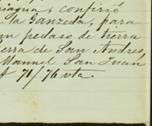 confirió
la Ganzeda, para
un pedaso de tierra
erra de San Andres
Manuel San Juan
f 71/76 vta.